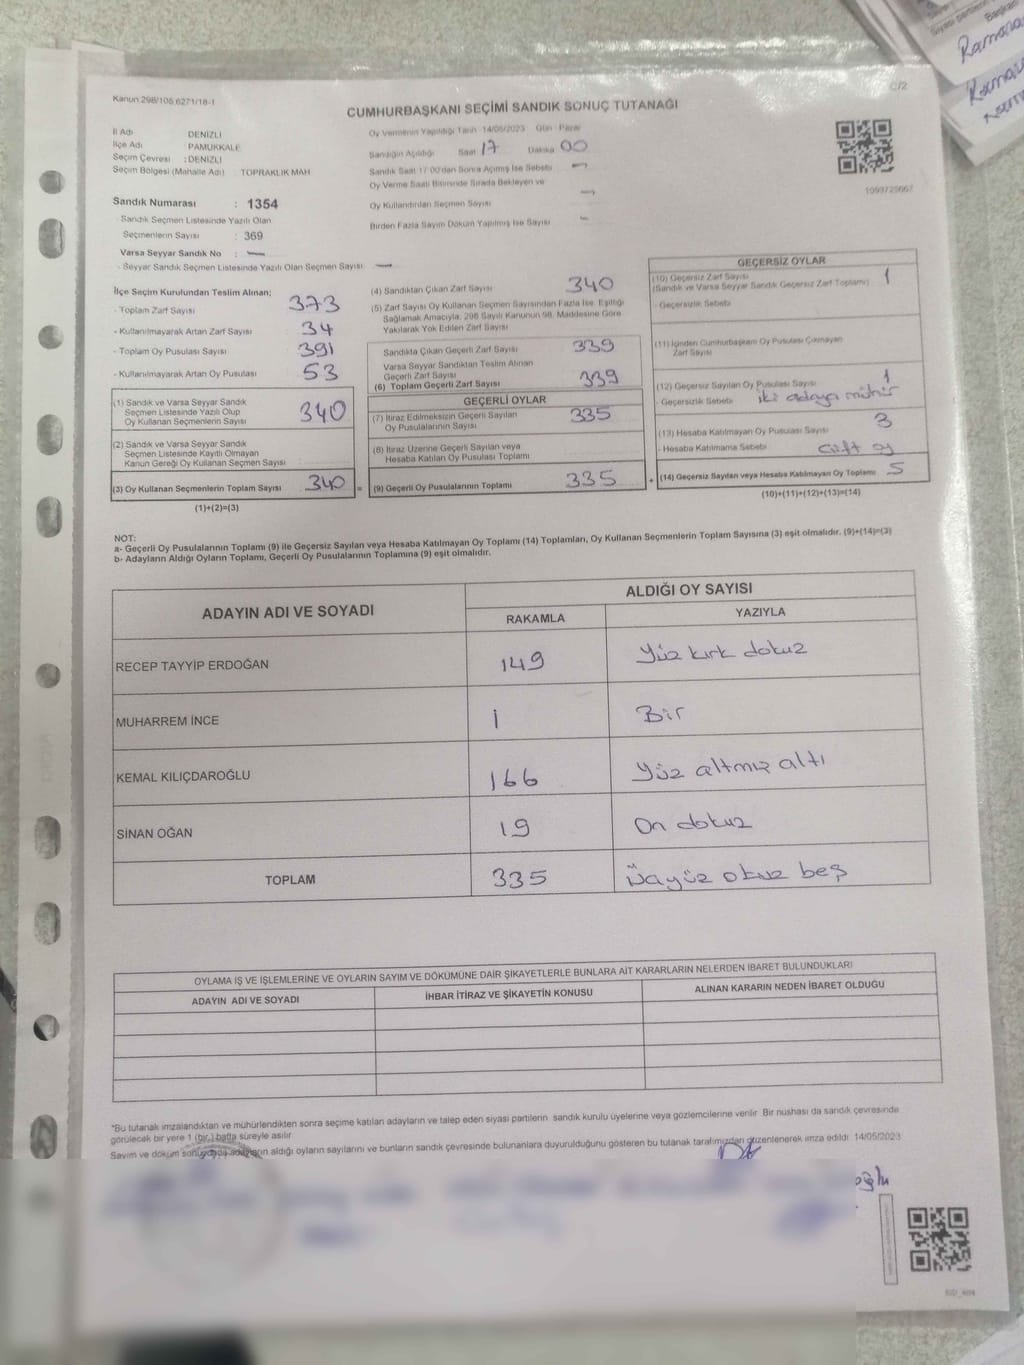 Kanun 298/105 6271/18-1
C/2
CUMHURBAŞKANI SEÇİMİ SANDIK SONUÇ TUTANAĞI
İl Adı DENİZLİ
İlçe Adı : PAMUKKALE
Seçim Çevresi : DENİZLİ
Seçim Bölgesi (Mahalle Adı) TOPRAKLIK MAH
Oy Vermenin Yapıldığı Tarih 14/05/2023 Gün Pazar
Sandığın Açıldığı Saat 17 Dakika 00
Sandık Saat 17 00'dan Sonra Açımış İse Sebebi —
Oy Verme Saati Bitiminde Sırada Bekleyen ve
Oy Kullandırılan Seçmen Sayısı —
Birden Fazla Sayım Döküm Yapılmış İse Sayısı —
Sandık Numarası : 1354
- Sandık Seçmen Listesinde Yazılı Olan
Seçmenlerin Sayısı : 369
Varsa Seyyar Sandık No : —
- Seyyar Sandık Seçmen Listesinde Yazılı Olan Seçmen Sayısı —
İlçe Seçim Kurulundan Teslim Alınan;
- Toplam Zarf Sayısı 373
- Kullanılmayarak Artan Zarf Sayısı 34
- Toplam Oy Pusulası Sayısı 391
- Kullanılmayarak Artan Oy Pusulası 53
(1) Sandık ve Varsa Seyyar Sandık
Seçmen Listesinde Yazılı Olup
Oy Kullanan Seçmenlerin Sayısı 340
(2) Sandık ve Varsa Seyyar Sandık
Seçmen Listesinde Kayıtlı Olmayan
Kanun Gereği Oy Kullanan Seçmen Sayısı
(3) Oy Kullanan Seçmenlerin Toplam Sayısı 340 =
(1)+(2)=(3)
(4) Sandıktan Çıkan Zarf Sayısı 340
(5) Zarf Sayısı Oy Kullanan Seçmen Sayısından Fazla İse, Eşitliği
Sağlamak Amacıyla, 298 Sayılı Kanunun 98. Maddesine Göre
Yakılarak Yok Edilen Zarf Sayısı
Sandıkta Çıkan Geçerli Zarf Sayısı 339
Varsa Seyyar Sandıktan Teslim Alınan
Geçerli Zarf Sayısı
(6) Toplam Geçerli Zarf Sayısı 339
GEÇERLİ OYLAR
(7) İtiraz Edilmeksizin Geçerli Sayılan
Oy Pusulalarının Sayısı 335
(8) İtiraz Üzerine Geçerli Sayılan veya
Hesaba Katılan Oy Pusulası Toplamı
(9) Geçerli Oy Pusulalarının Toplamı 335 +
GEÇERSİZ OYLAR
(10) Geçersiz Zarf Sayısı
(Sandık ve Varsa Seyyar Sandık Geçersiz Zarf Toplamı) 1
- Geçersizlik Sebebi
(11) İçinden Cumhurbaşkanı Oy Pusulası Çıkmayan
Zarf Sayısı
(12) Geçersiz Sayılan Oy Pusulası Sayısı 1
- Geçersizlik Sebebi iki adaya mühür
(13) Hesaba Katılmayan Oy Pusulası Sayısı 3
- Hesaba Katılmama Sebebi Çift oy
(14) Geçersiz Sayılan veya Hesaba Katılmayan Oy Toplamı 5
(10)+(11)+(12)+(13)=(14)
NOT:
a- Geçerli Oy Pusulalarının Toplamı (9) ile Geçersiz Sayılan veya Hesaba Katılmayan Oy Toplamı (14) Toplamları, Oy Kullanan Seçmenlerin Toplam Sayısına (3) eşit olmalıdır. (9)+(14)=(3)
b- Adayların Aldığı Oyların Toplamı, Geçerli Oy Pusulalarının Toplamına (9) eşit olmalıdır.
ADAYIN ADI VE SOYADI ALDIĞI OY SAYISI
RAKAMLA YAZIYLA
RECEP TAYYİP ERDOĞAN 149 Yüz kırk dokuz
MUHARREM İNCE 1 Bir
KEMAL KILIÇDAROĞLU 166 Yüz altmız altı
SİNAN OĞAN 19 On dokuz
TOPLAM 335 Üçyüz otuz beş
OYLAMA İŞ VE İŞLEMLERİNE VE OYLARIN SAYIM VE DÖKÜMÜNE DAİR ŞİKAYETLERLE BUNLARA AİT KARARLARIN NELERDEN İBARET BULUNDUKLARI
ADAYIN ADI VE SOYADI İHBAR İTİRAZ VE ŞİKAYETİN KONUSU ALINAN KARARIN NEDEN İBARET OLDUĞU
*Bu tutanak imzalandıktan ve mühürlendikten sonra seçime katılan adayların ve talep eden siyasi partilerin sandık kurulu üyelerine veya gözlemcilerine verilir Bir nushası da sandık çevresinde
görülecek bir yere 1 (bir) hafta süreyle asılır
Sayım ve döküm sonucunda adayların aldığı oyların sayılarını ve bunların sandık çevresinde bulunanlara duyurulduğunu gösteren bu tutanak tarafımızdan düzenlenerek imza edildi 14/05/2023
oğlu